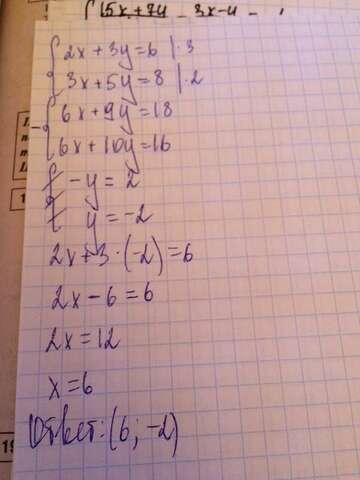 2x + 3y = 6 | · 3
3x + 5y = 8 | · 2
6x + 9y = 18
6x + 10y = 16
-y = 2
y = -2
2x + 3 · (-2) = 6
2x - 6 = 6
2x = 12
x = 6
Ответ: (6; -2)